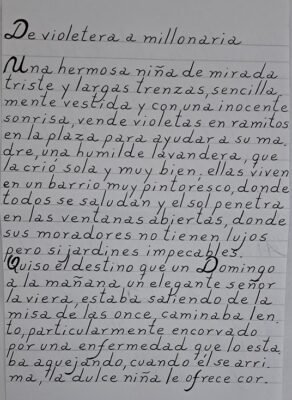 De violetera a millonaria
Una hermosa niña de mirada
triste y largas trenzas, sencilla
mente vestida y con, una inocente
sonrisa, vende violetas en ramitos
en la plaza para ayudar a su ma
dre, una humilde lavandera, que
la crió sola y muy bien, ellas viven
en un barrio muy pintoresco, donde
todos se saludan y el sol penetra
en las ventanas abiertas, donde
sus moradores no tienen lujos
pero si jardines impecables.
Quiso el destino que un Domingo
a la mañana, un elegante señor
la viera, estaba saliendo de la
misa de las once, caminaba len
to, particularmente encorvado
por una enfermedad que lo esta
ba aquejando, cuando él se arri
ma, la dulce niña le ofrece cor.